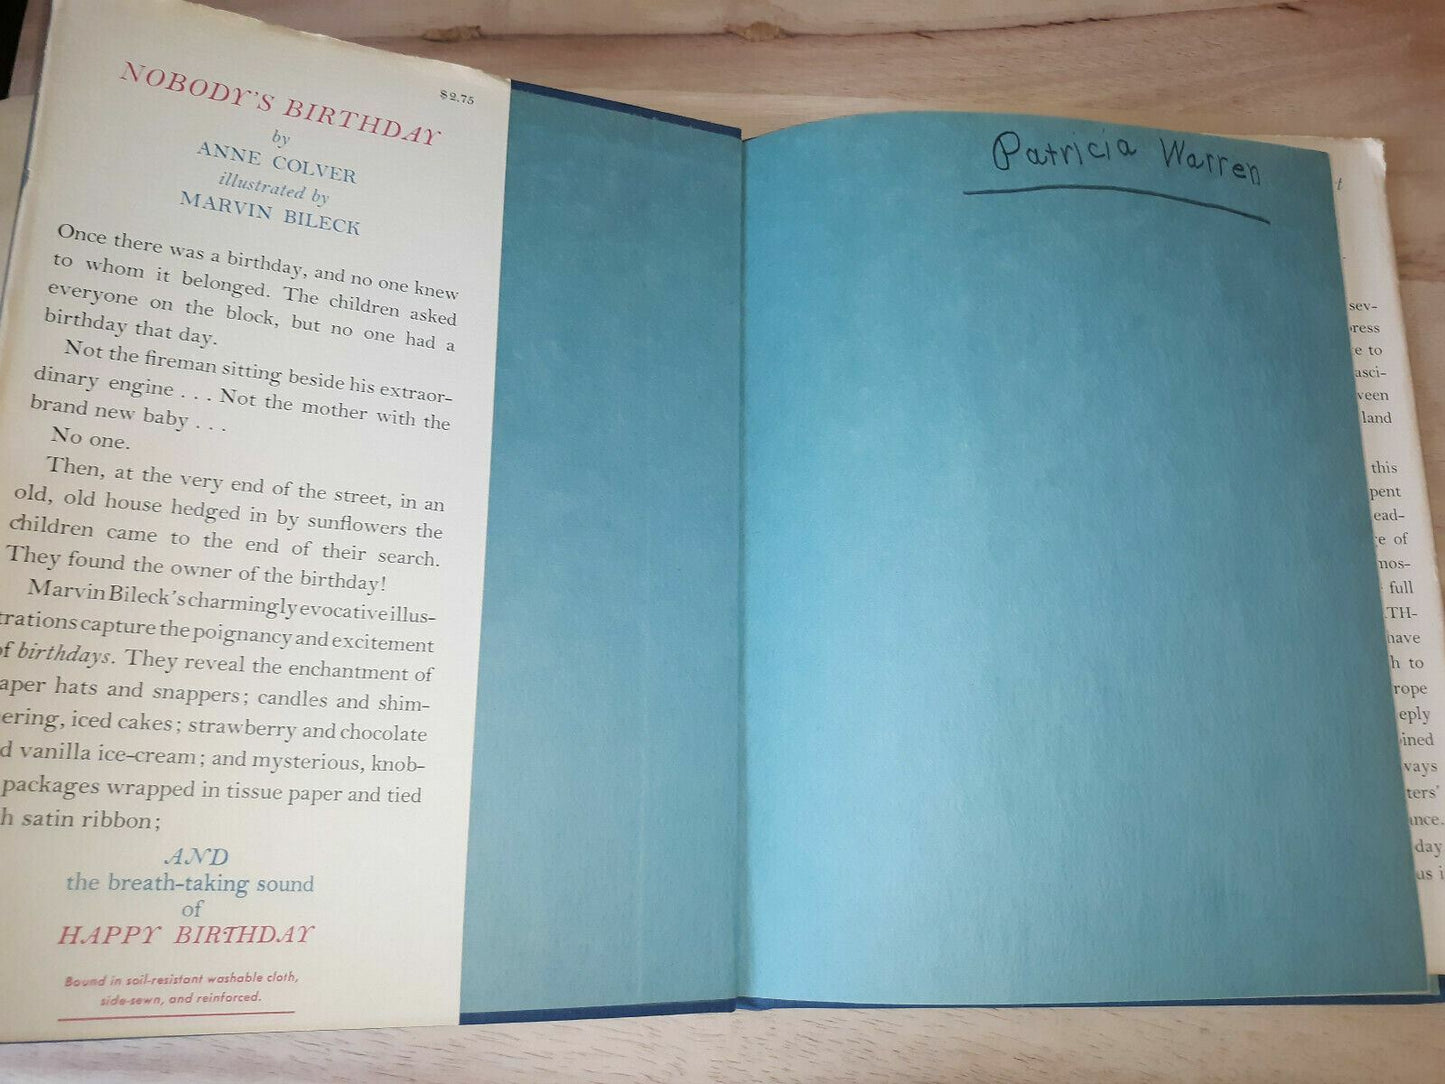 $2.75
NOBODY'S BIRTHDAY
by
ANNE COLVER
illustrated by
MARVIN BILECK
Once there was a birthday, and no one knew
to whom it belonged. The children asked
everyone on the block, but no one had a
birthday that day.
Not the fireman sitting beside his extraor-
dinary engine . . . Not the mother with the
brand new baby . . .
No one.
Then, at the very end of the street, in an
old, old house hedged in by sunflowers the
children came to the end of their search.
They found the owner of the birthday!
Marvin Bileck's charmingly evocative illus-
trations capture the poignancy and excitement
of birthdays. They reveal the enchantment of
aper hats and snappers; candles and shim-
ering, iced cakes; strawberry and chocolate
d vanilla ice-cream; and mysterious, knob-
packages wrapped in tissue paper and tied
h satin ribbon;
AND
the breath-taking sound
of
HAPPY BIRTHDAY
Bound in soil-resistant washable cloth,
side-sewn, and reinforced.
Patricia Warren
t
sev-
ress
e to
asci-
veen
land
this
pent
ead-
e of
nos-
full
TH-
have
h to
rope
eply
ined
ways
ters'
ance.
day
us i